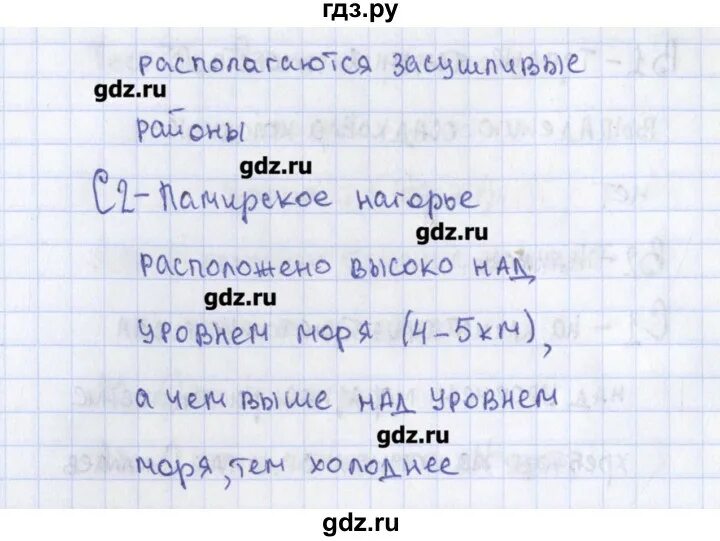 гдз.ру
располагаются засушливые
gdz.ru
районы
gdz.ru
C2-Памирское нагорье
gdz.ru
расположено высоко над
gdz.ru
уровнем моря (4-5км),
а чем выше над уровнем
gdz.ru
моря, тем холоднее
gdz.ru